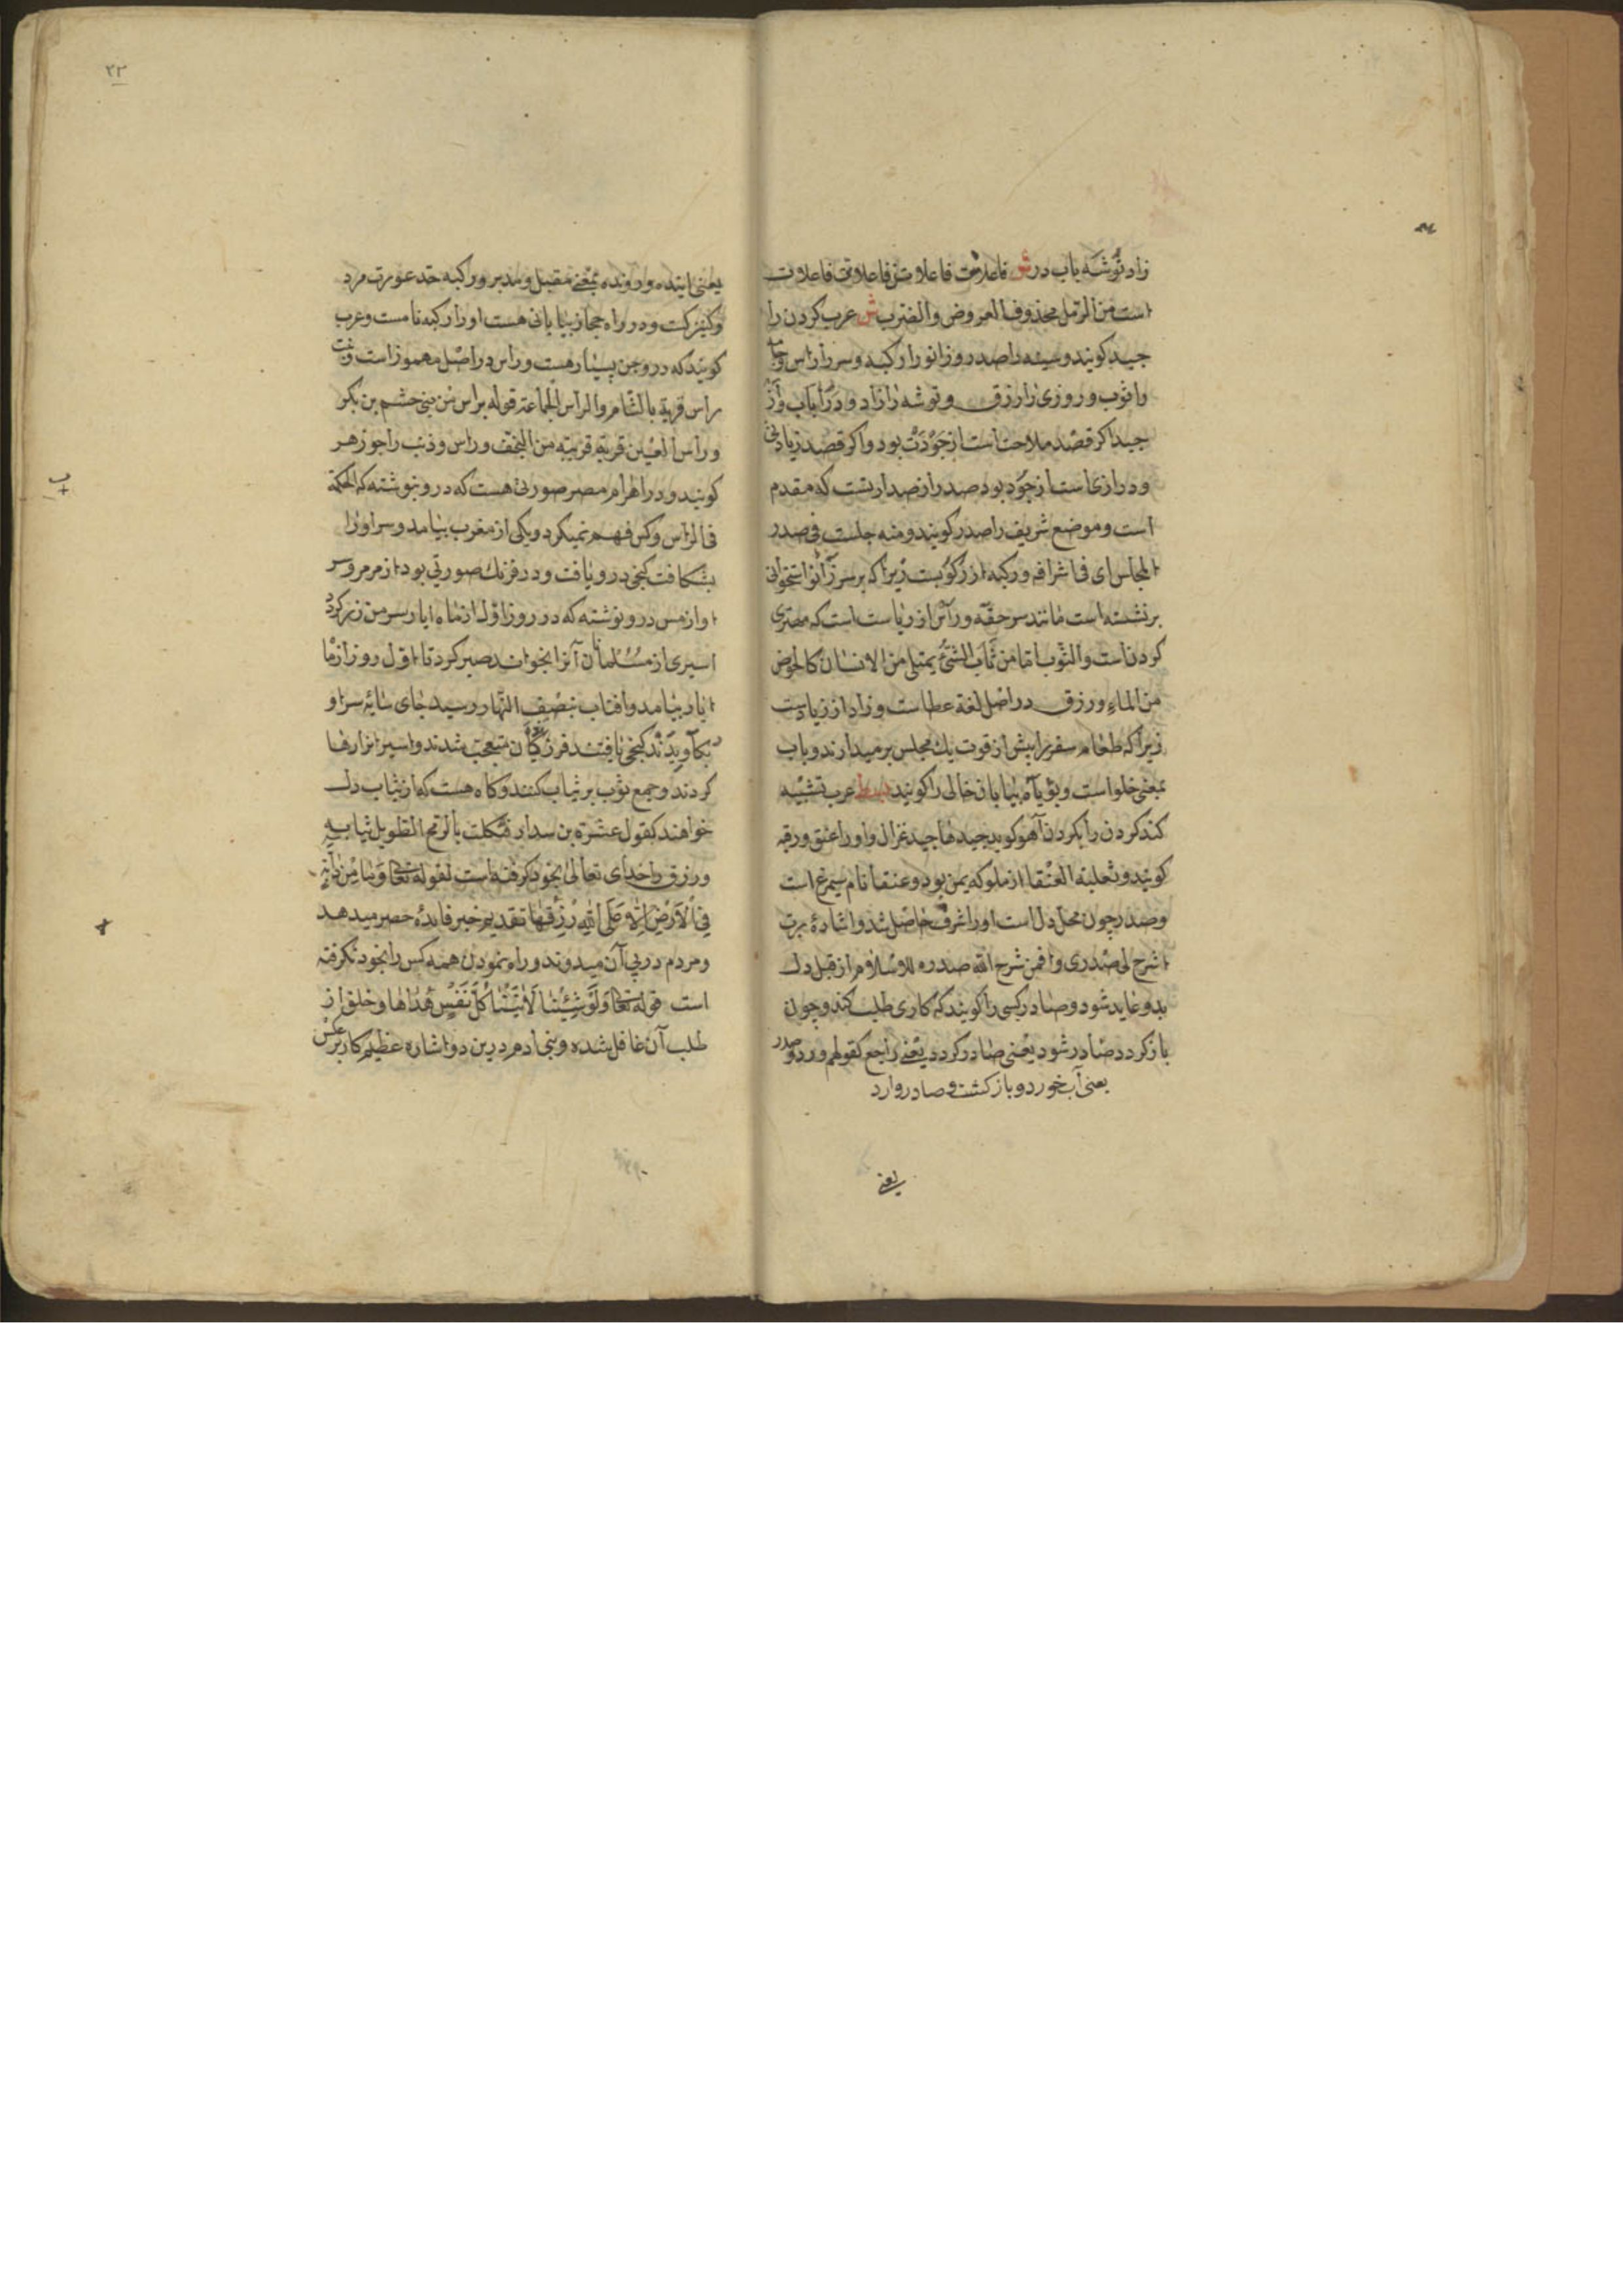 زاد توشه باب در ش فاعلاتن فاعلاتن فاعلاتن فاعلات
است من الرمل محذوف العروض والضرب ش عرب کردن را
جید کویند و سینه را صدر و زانو را رکبه و سر را راس و جامه
را ثوب و روزی را رزق و توشه را زاد و در را باب و از
جید اکر قصد ملاحت است از جودت بود و اکر قصد زیادتی
و درازی است از جود بود صدر از صدارتست که مقدم
است و موضع شریف را صدر کویند و منه جلست فی صدر
المجلس ای فی اشرافه و رکبه از رکوبست زیرا که بر سر زانو استخوانی
برنشسته است مانند سر حقه و راس از ریاست است که مهتری
کردن است والثوب اما من ثاب الشئ یمتلی من الانسان کالحوض
من الماء و رزق در اصل لغة عطاست و زاد از زیادست
زیرا که طعام سفر را بیش از قوت یک مجلس بر میدارند و باب
بمعنی خلو است و بیابان خالی را کویند عرب تشبیه
کند کردن را بکردن آهو کوید جیدها جید غزال و او را عنق و رقبه
کویند و ثعلبة العنقا از ملوک یمن بود و عنقا نام سیمرغ است
و صدر چون محل دل است او را شرف حاصل شد و اشاره برب
اشرح لی صدری و افمن شرح الله صدره للاسلام از قبل دل
بدو عاید شود و صادر کسی را کویند که کاری طلب کند و چون
باز کردد صادر شود یعنی صادر کردد یعنی راجع کقولهم ورد و صدر
یعنی آب خورد و باز کشت و صادر وارد
یعنی
۲۲
یعنی اینده و رونده بمعنی مقبل و مدبر و رکبه حد عورت مرد
و کنیزکست و در راه حجاز بیابانی هست او را رکبه نامست و عرب
کویند که در و جن بسیار هست و راس در اصل مهموز است
راس قریة بالشام والراس الجماعة قوله براس من بنی جشم بن بکر
و راس العین قریة قریبة من و راس و ذنب را جوزهر
کویند و در اهرام مصر صورتی هست که در و نوشته که الحکمة
فی الراس و کس فهم نمیکرد و یکی از مغرب بیامد و سر او را
بشکافت کنجی در و یافت و در فرنک صورتی بود از مرمر و سر
او از مس در و نوشته که در روز اول از ماه ایار سر من زر کردد
اسیری از مسلمانان آنرا بخواند صبر کرد تا اول روز از ماه
ایار بیامد و افتاب بنصف النهار رسید جای سایه سر او
بکاویدند کنجی یافتند فرنکیان متعجب شدند و اسیرانرا رها
کردند و جمع ثوب بر ثیاب کنند و کاه هست که از ثیاب دل
خواهند کقول عنترة بن سداد فشککت بالرمح الطویل ثیابه
و رزق را خدای تعالی بخود کرفته است لقوله تعالی وما من دابة
فی الارض الا علی الله رزقها تقدیم خبر فایدهٔ حصر میدهد
و مردم در پی آن میدوند و راه نمودن همه کس را بخود نکرفته
است قوله تعالی ولو شئنا لاتینا کل نفس هداها و خلق از
طلب آن غافل شده و بنی ادم درین دو اشاره عظیم کار بر عکس